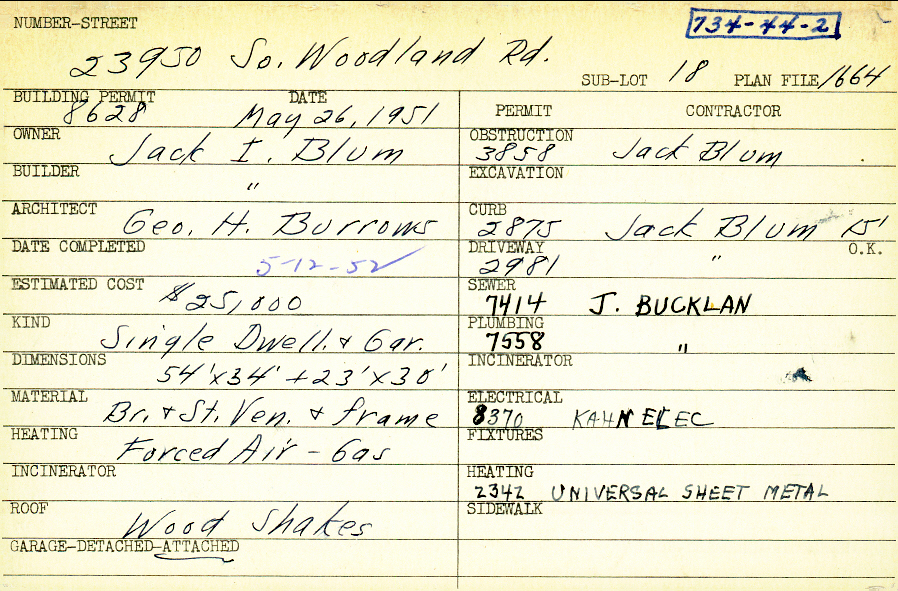 NUMBER-STREET
734-44-2
23950 So. Woodland Rd.
SUB-LOT 18 PLAN FILE 1664
BUILDING PERMIT DATE
8628 May 26, 1951
OWNER
Jack I. Blum
BUILDER
"
ARCHITECT
Geo. H. Burrows
DATE COMPLETED
5-12-52 ✓
ESTIMATED COST
$25,000
KIND
Single Dwell. & Gar.
DIMENSIONS
54'x34' + 23'x30'
MATERIAL
Br. & St. Ven. & frame
HEATING
Forced Air - Gas
INCINERATOR
ROOF
Wood Shakes
GARAGE-DETACHED-ATTACHED
PERMIT CONTRACTOR
OBSTRUCTION
3858 Jack Blum
EXCAVATION
CURB
2875 Jack Blum 15'
DRIVEWAY O.K.
2981 "
SEWER
7414 J. BUCKLAN
PLUMBING
7558 "
INCINERATOR
ELECTRICAL
8370 KAHN ELEC
FIXTURES
HEATING
2342 UNIVERSAL SHEET METAL
SIDEWALK